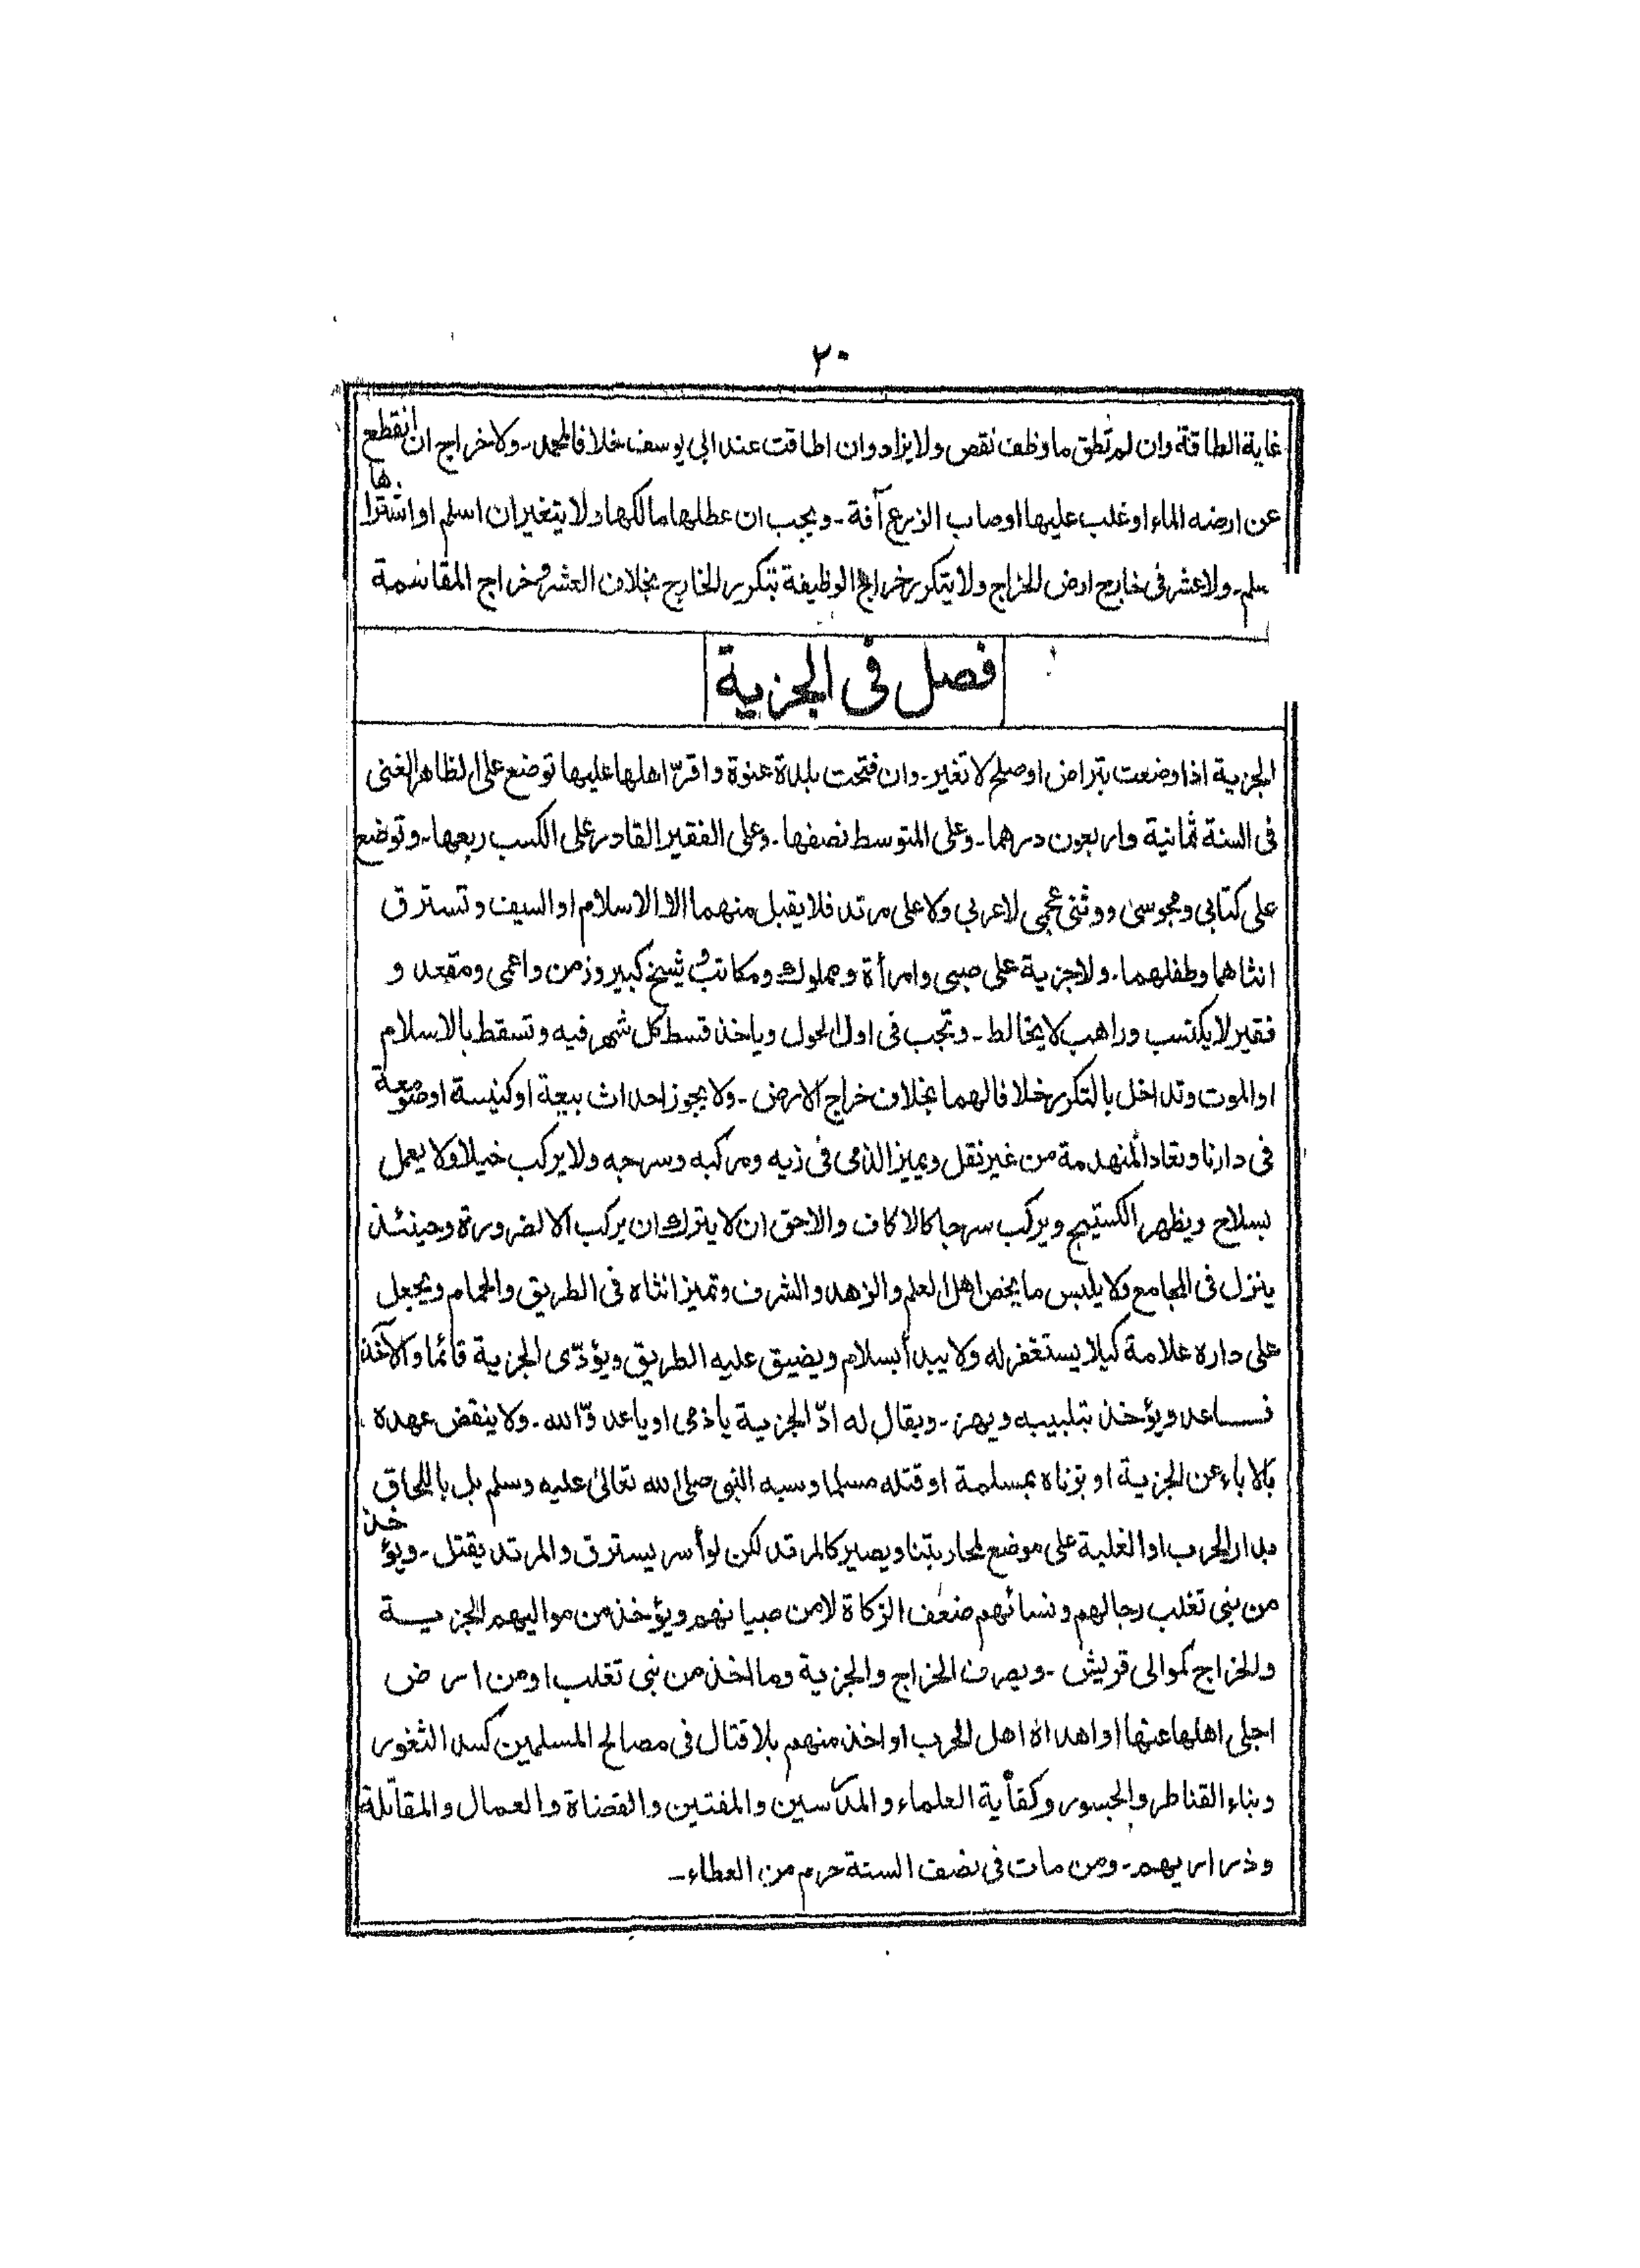 ٢٠
غاية الطاقة وان لم تطق ما وظف نقص ولا يزاد وان اطاقت عند ابي يوسف خلافا لمحمد۔ ولا خراج ان انقطع
عن ارضه الماء او غلب عليها او صاب الزرع آفة۔ ويجب ان عطلها مالكها ولا يتغير ان اسلم او اشتراها
مسلم۔ ولا عشر فى خارج ارض الخراج ولا يتكرر خراج الوظيفة بتكرر الخارج بخلاف العشر وخراج المقاسمة
فصل فى الجزية
الجزية اذا وضعت بتراض او صلح لا تغير۔ وان فتحت بلدة عنوة واقرّ اهلها عليها توضع على الظاهر الغنى
فى السنة ثمانية واربعون درهما۔ وعلى المتوسط نصفها۔ وعلى الفقير القادر على الكسب ربعها۔ وتوضع
على كتابي ومجوسى ووثنى عجمي لا عربي ولا على مرتد فلا يقبل منهما الا الاسلام او السيف وتسترق
انثاهما وطفلهما۔ ولا جزية على صبى وامرأة ومملوك ومكاتب وشيخ كبير وزمن واعمى ومقعد و
فقير لا يكتسب وراهب لا يخالط۔ وتجب فى اول الحول وياخذ قسط كل شهر فيه وتسقط بالاسلام
او الموت وتداخل بالتكرر خلافا لهما بخلاف خراج الارض۔ ولا يجوز احداث بيعة او كنيسة او صومعة
فى دارنا وتعاد المنهدمة من غير نقل ويميز الذمى فى زيه ومركبه وسرجه ولا يركب خيلا ولا يعمل
بسلاح ويظهر الكستيج ويركب سرجا كالاكاف والاحق ان لا يترك ان يركب الا لضرورة وحينئذ
ينزل فى المجامع ولا يلبس ما يخص اهل العلم والزهد والشرف وتميز انثاه فى الطريق والحمام ويجعل
على داره علامة كيلا يستغفر له ولا يبدأ بسلام ويضيق عليه الطريق ويؤدّى الجزية قائما والآخذ
قاعد ويؤخذ بتلبيبه ويهز۔ ويقال له ادّ الجزية يا ذمى او يا عدوّ الله۔ ولا ينقض عهده
بالاباء عن الجزية او بزناه بمسلمة او قتله مسلما وسبه النبى صلى الله تعالىٰ عليه وسلم بل باللحاق
بدار الحرب او الغلبة على موضع لمحاربتنا ويصير كالمرتد لكن لو أسر يسترق والمرتد يقتل۔ ويؤخذ
من بنى تغلب رجالهم ونسائهم ضعف الزكاة لا من صبيانهم ويؤخذ من مواليهم الجزية
والخراج كموالى قريش۔ ويصرف الخراج والجزية وما اخذ من بنى تغلب او من ارض
اجلى اهلها عنها او اهداه اهل الحرب او اخذ منهم بلا قتال فى مصالح المسلمين كسد الثغور
وبناء القناطر والجسور وكفاية العلماء والمدرسين والمفتين والقضاة والعمال والمقاتلة
وذراريهم۔ ومن مات فى نصف السنة حرم من العطاء۔